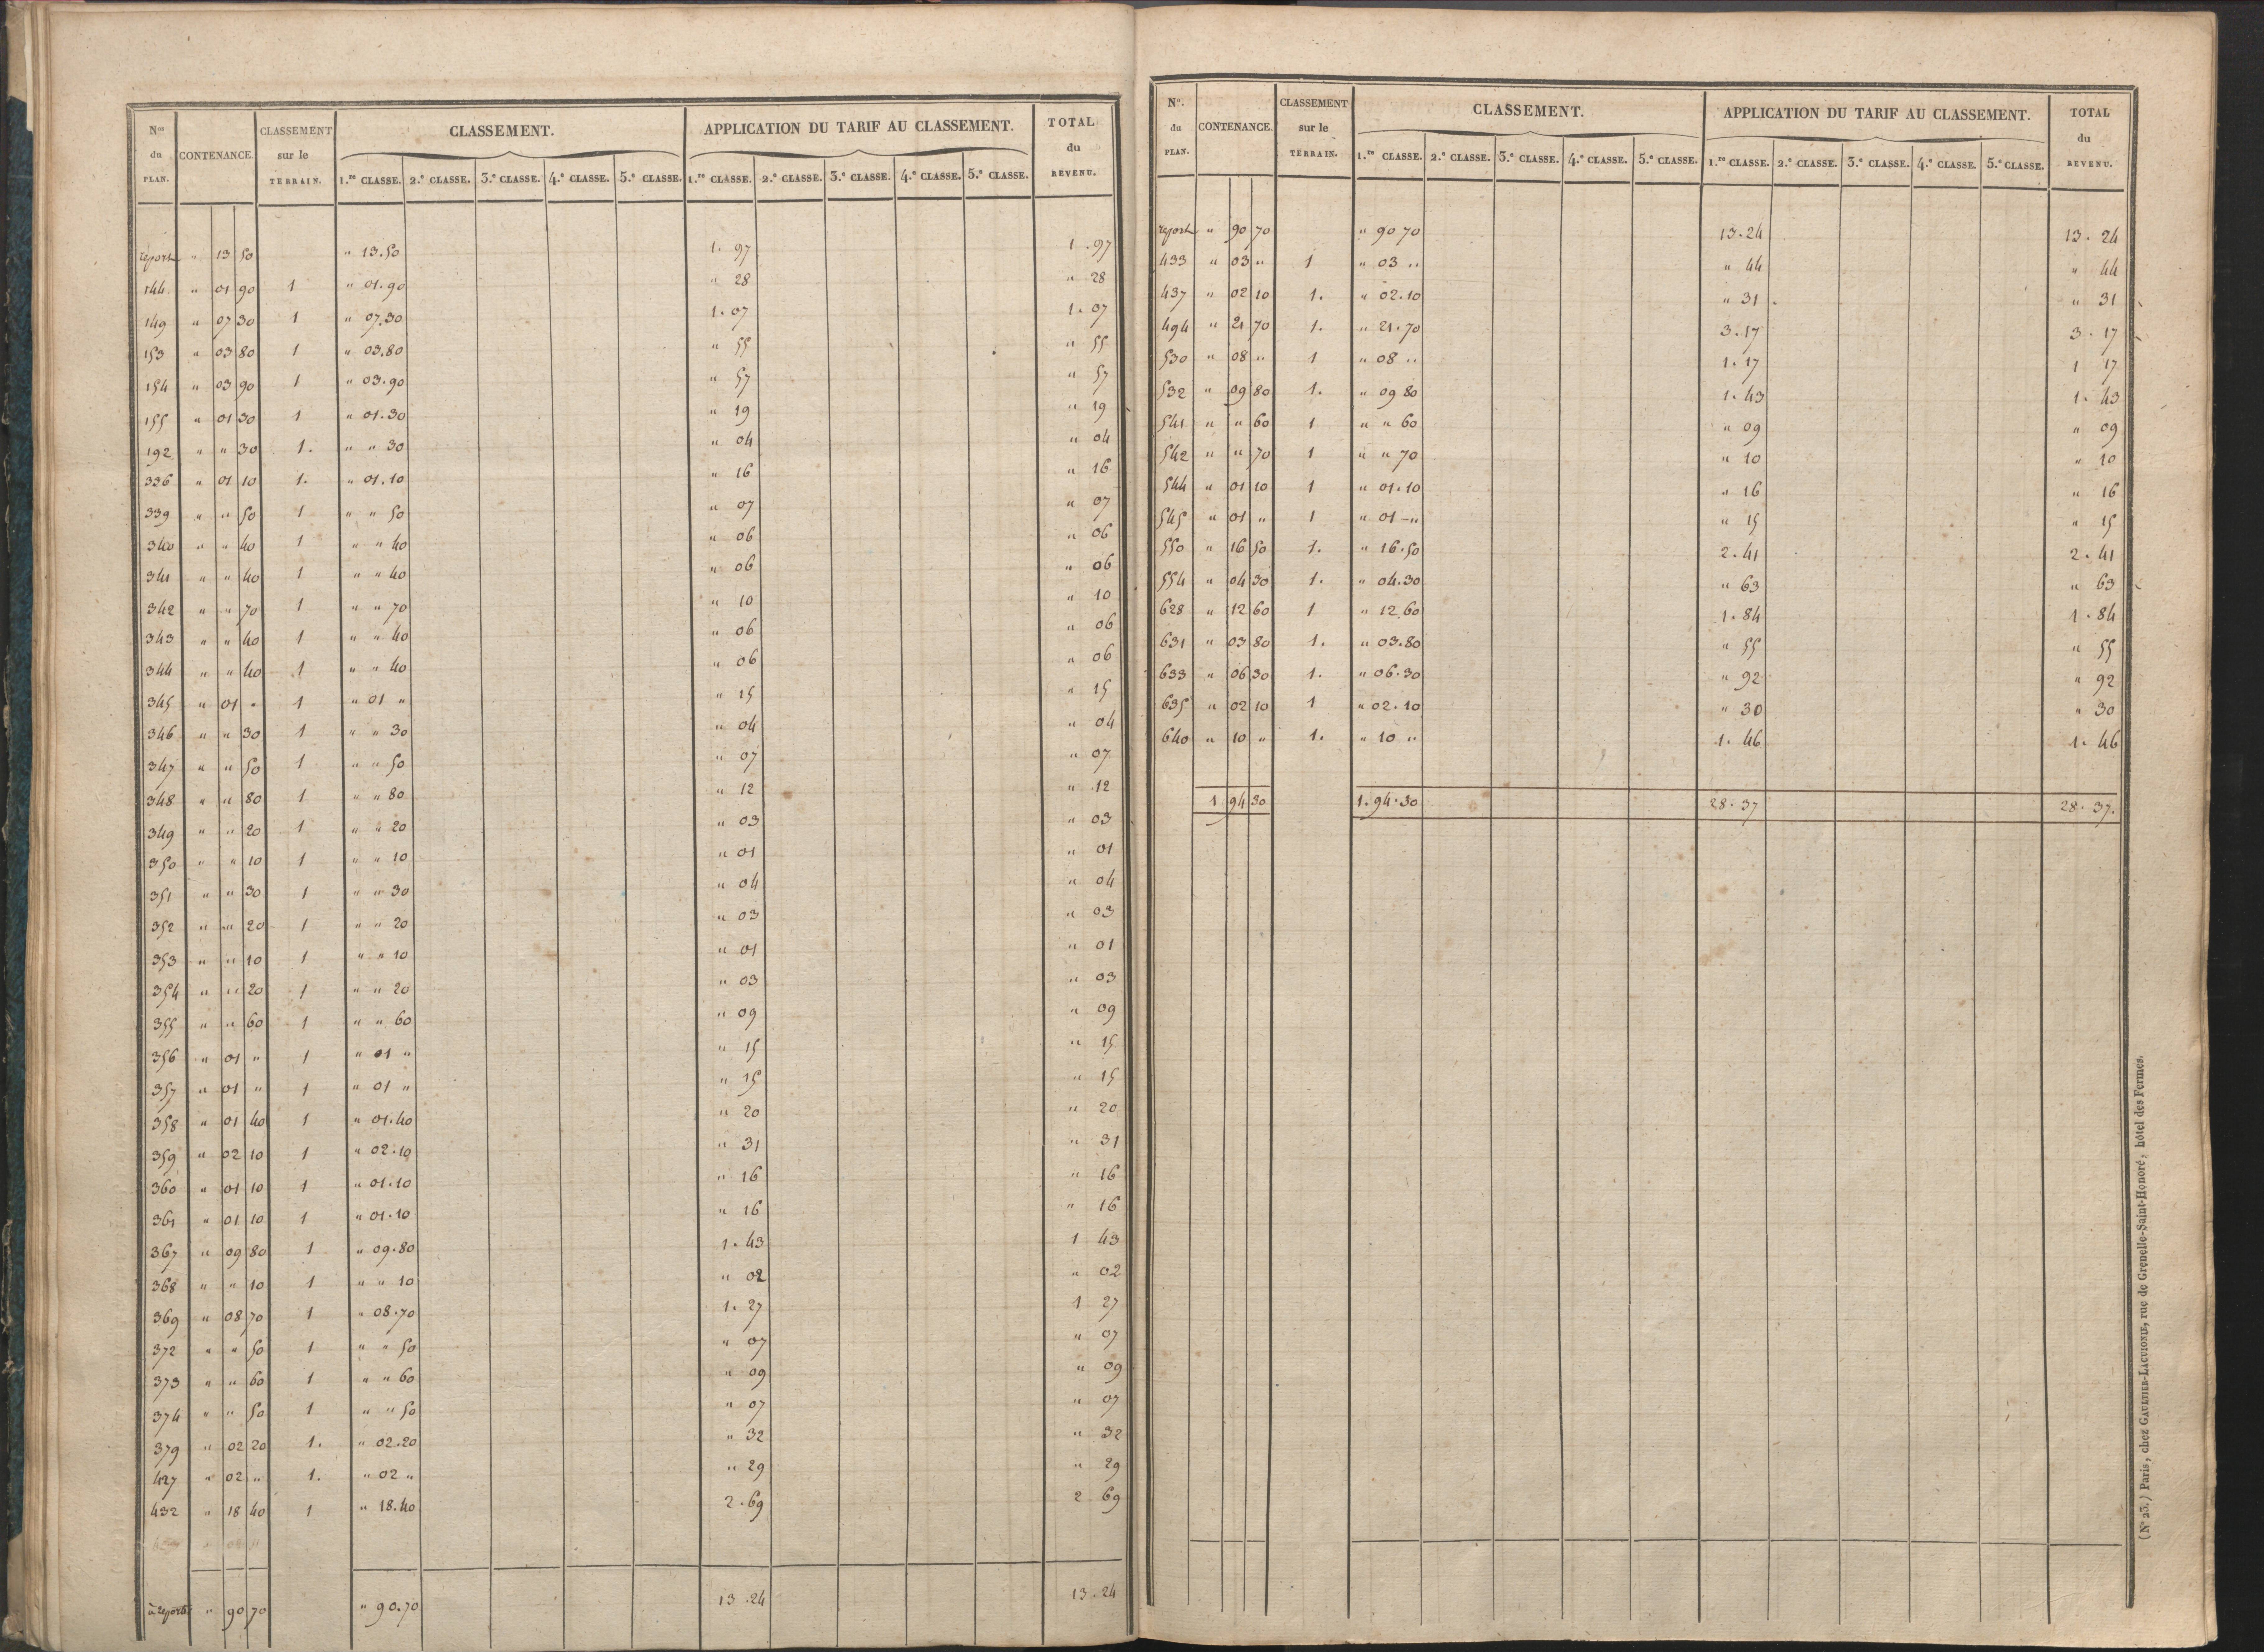 Nos du PLAN. CONTENANCE. CLASSEMENT sur le TERRAIN. CLASSEMENT. APPLICATION DU TARIF AU CLASSEMENT. TOTAL du REVENU.
1.re CLASSE. 2.e CLASSE. 3.e CLASSE. 4.e CLASSE. 5.e CLASSE. 1.re CLASSE. 2.e CLASSE. 3.e CLASSE. 4.e CLASSE. 5.e CLASSE.
report " 13 50 " 13.50 1. 97 1.97
144 " 01 90 1 " 01.90 " 28 " 28
149 " 07 30 1 " 07.30 1.07 1.07
153 " 03 80 1 " 03.80 " 55 " 55
154 " 03 90 1 " 03.90 " 57 " 57
155 " 01 30 1 " 01.30 " 19 " 19
192 " " 30 1. " " 30 " 04 " 04
336 " 01 10 1. " 01.10 " 16 " 16
339 " " 50 1 " " 50 " 07 " 07
340 " " 40 1 " " 40 " 06 " 06
341 " " 40 1 " " 40 " 06 " 06
342 " " 70 1 " " 70 " 10 " 10
343 " " 40 1 " " 40 " 06 " 06
344 " " 40 1 " " 40 " 06 " 06
345 " 01 " 1 " 01 " " 15 " 15
346 " " 30 1 " " 30 " 04 " 04
347 " " 50 1 " " 50 " 07 " 07
348 " " 80 1 " " 80 " 12 " 12
349 " " 20 1 " " 20 " 03 " 03
350 " " 10 1 " " 10 " 01 " 01
351 " " 30 1 " " 30 " 04 " 04
352 " " 20 1 " " 20 " 03 " 03
353 " " 10 1 " " 10 " 01 " 01
354 " " 20 1 " " 20 " 03 " 03
355 " " 60 1 " " 60 " 09 " 09
356 " 01 " 1 " 01 " " 15 " 15
357 " 01 " 1 " 01 " " 15 " 15
358 " 01 40 1 " 01.40 " 20 " 20
359 " 02 10 1 " 02.10 " 31 " 31
360 " 01 10 1 " 01.10 " 16 " 16
361 " 01 10 1 " 01.10 " 16 " 16
367 " 09 80 1 " 09.80 1.43 1 43
368 " " 10 1 " " 10 " 02 " 02
369 " 08 70 1 " 08.70 1.27 1 27
372 " " 50 1 " " 50 " 07 " 07
373 " " 60 1 " " 60 " 09 " 09
374 " " 50 1 " " 50 " 07 " 07
379 " 02 20 1. " 02.20 " 32 " 32
427 " 02 " 1. " 02 " " 29 " 29
432 " 18 40 1 " 18.40 2.69 2 69
à reporter " 90 70 " 90.70 13.24 13.24
No. du PLAN. CONTENANCE. CLASSEMENT sur le TERRAIN. CLASSEMENT. APPLICATION DU TARIF AU CLASSEMENT. TOTAL du REVENU.
1.re CLASSE. 2.e CLASSE. 3.e CLASSE. 4.e CLASSE. 5.e CLASSE. 1.re CLASSE. 2.e CLASSE. 3.e CLASSE. 4.e CLASSE. 5.e CLASSE.
report " 90 70 " 90 70 13.24 13.24
433 " 03 " 1 " 03 " " 44 " 44
437 " 02 10 1. " 02.10 " 31 " 31
494 " 21 70 1. " 21.70 3.17 3.17
530 " 08 " 1 " 08 " 1.17 1 17
532 " 09 80 1. " 09 80 1.43 1.43
541 " " 60 1 " " 60 " 09 " 09
542 " " 70 1 " " 70 " 10 " 10
544 " 01 10 1 " 01.10 " 16 " 16
545 " 01 " 1 " 01 - " " 15 " 15
550 " 16 50 1. " 16.50 2.41 2.41
554 " 04 30 1. " 04.30 " 63 " 63
628 " 12 60 1 " 12.60 1.84 1.84
631 " 03 80 1. " 03.80 " 55 " 55
633 " 06 30 1. " 06.30 " 92 " 92
635 " 02 10 1 " 02.10 " 30 " 30
640 " 10 " 1. " 10 " 1.46 1.46
1 94 30 1.94.30 28.37 28.37.
(N° 23.) Paris, chez GAULTIER-LAGUIONIE, rue de Grenelle-Saint-Honoré, hôtel des Fermes.